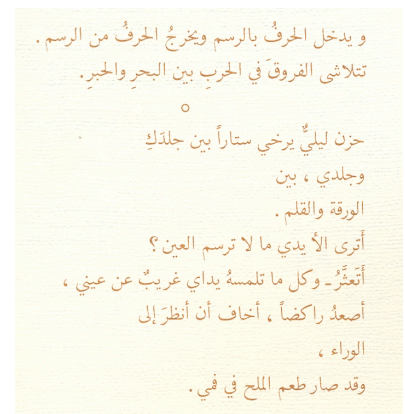 و يدخل الحرفُ بالرسم ويخرجُ الحرفُ من الرسم .
تتلاشى الفروقَ في الحربِ بين البحرِ والحبرِ .
حزن ليليٌّ يرخي ستاراً بين جلدَكِ
وجلدي ، بين
الورقة والقلم .
أَترى الأيدي ما لا ترسم العين ؟
أَتَعثَّرُ ـ وكل ما تلمسهُ يداي غريبٌ عن عيني ،
أصعدُ راكضاً ، أخاف أن أنظرَ إلى
الوراء ،
وقد صار طعم الملح في فمي .